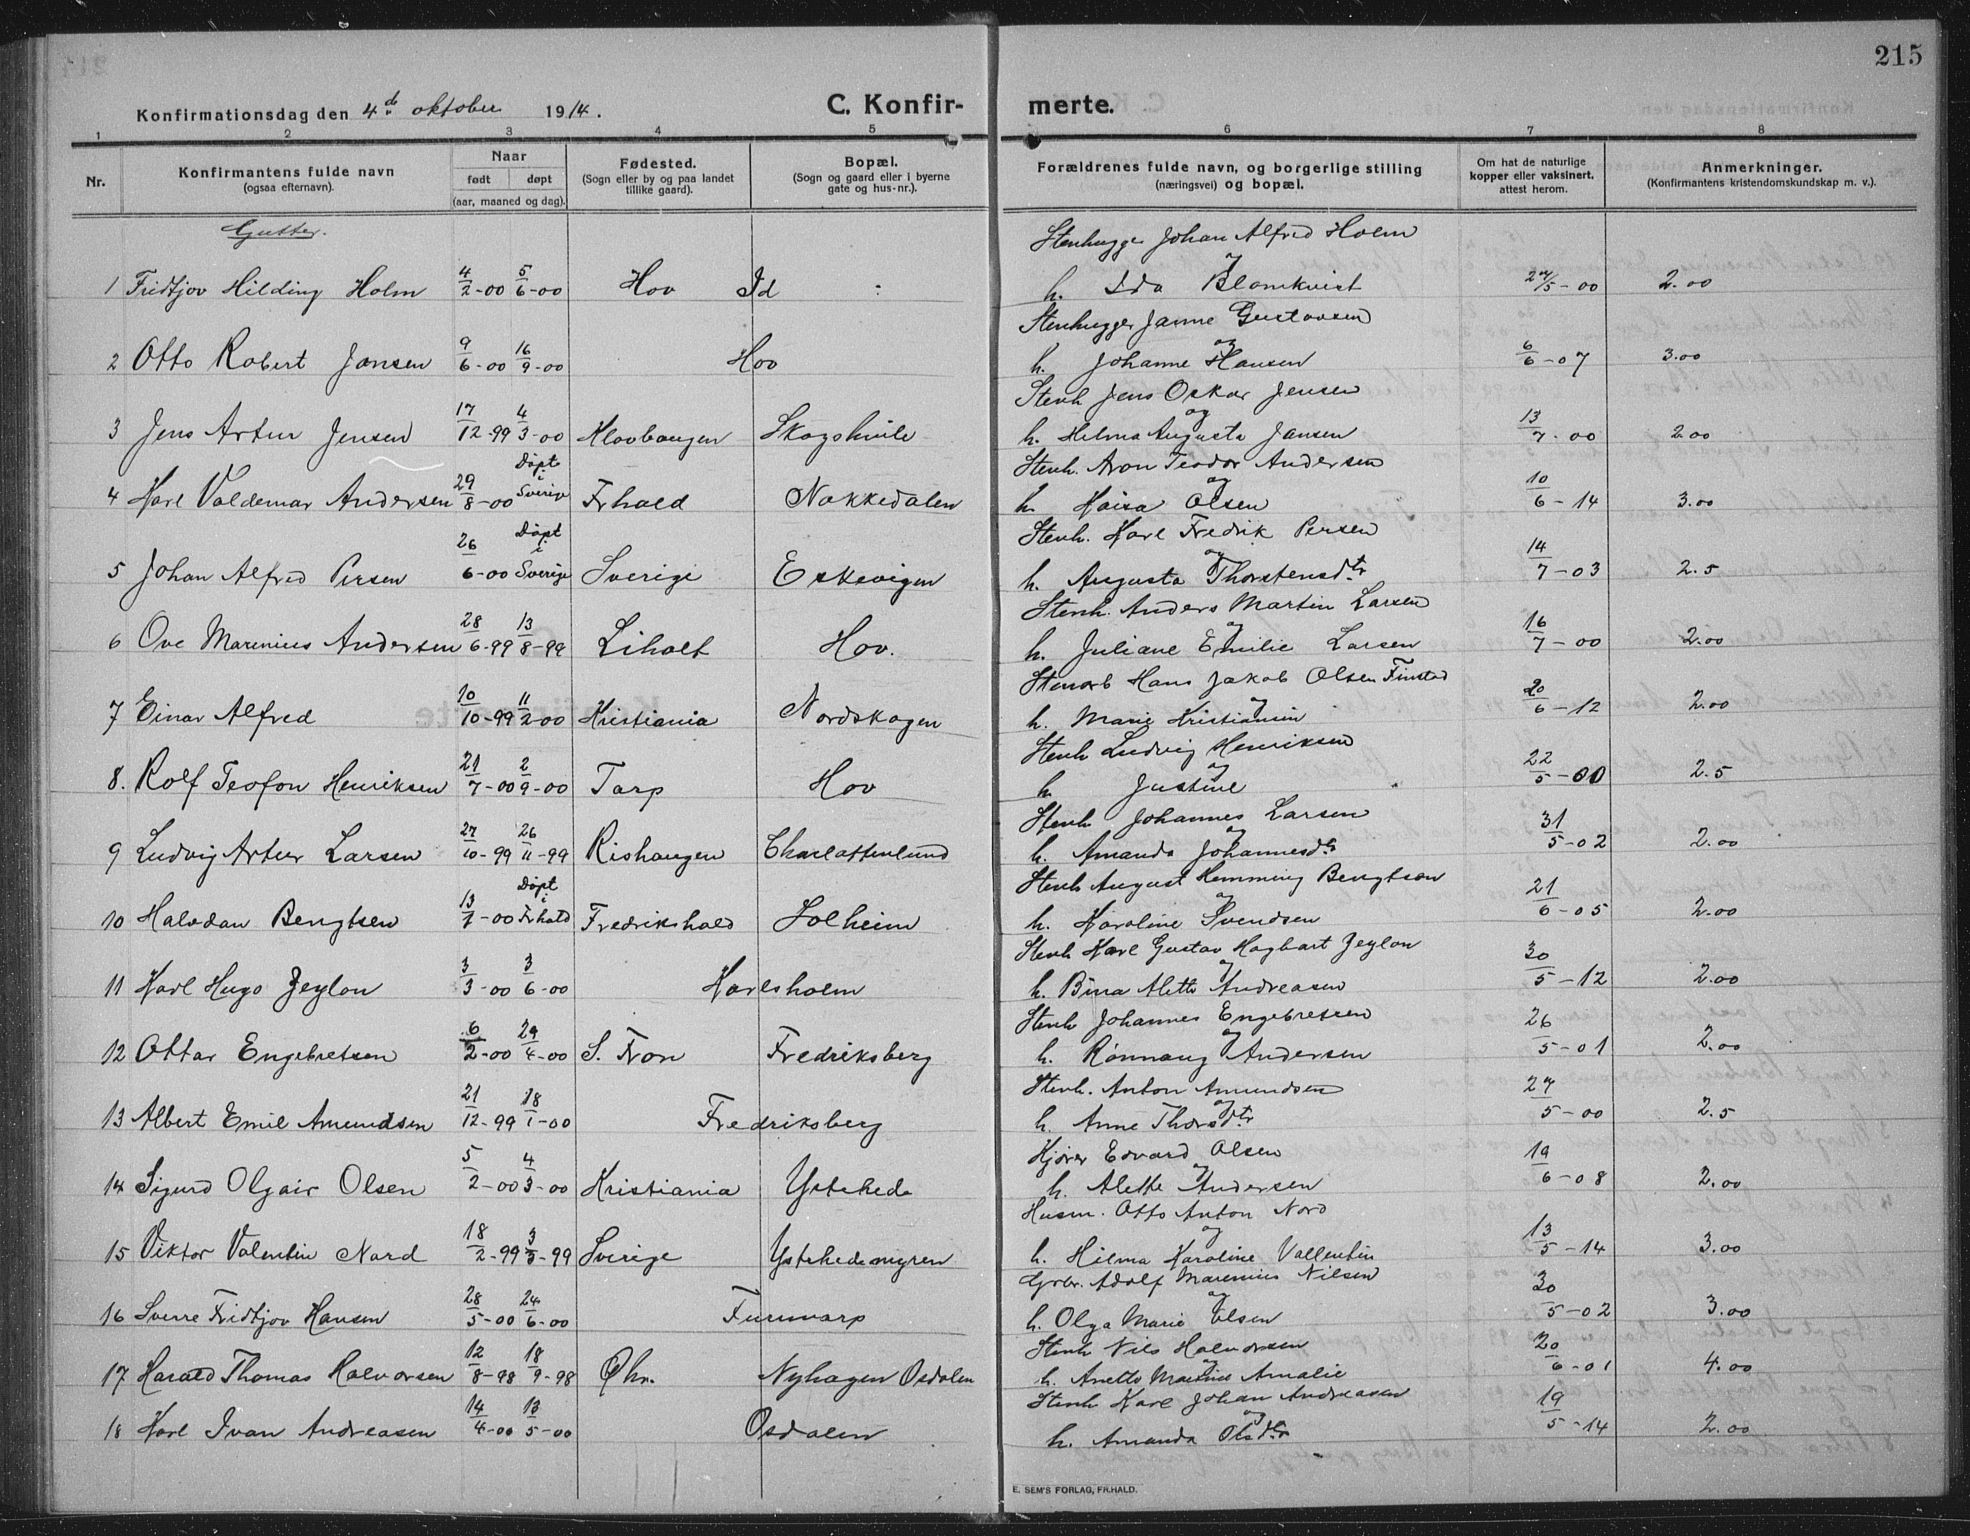 215
Konfirmationsdag den 4de oktober 1914. C. Konfirmerte.
1 2 3 4 5 6 7 8
Nr. Konfirmantens fulde navn (ogsaa efternavn). Naar født døpt (aar, maaned og dag). Fødested. (Sogn eller by og paa landet tillike gaard). Bopæl. (Sogn og gaard eller i byerne gate og hus-nr.). Forældrenes fulde navn, og borgerlige stilling (næringsvei) og bopæl. Om hat de naturlige kopper eller vaksinert, attest herom. Anmerkninger. (Konfirmantens kristendomskundskap m. v.).
Gutter.
Stenhugger Johan Alfred Holm og
1 Fridtjov Hilding Holm 4/2-00 5/6-00 Hov Id h. Ida Blomkvist 27/5-00 2.00
Stenhugger Janne Gustavsen og
2 Otto Robert Jansen 9/6-00 16/9-00 Hov h. Johanne Hansen 6/6-07 3.00
Stenh Jens Oskar Jensen og
3 Jens Artur Jensen 17/12-99 4/3-00 Klovhaugen Skogshvile h. Helma Augusta Jansen 13/7-00 2.00
Stenh. Aron Teodor Andersen og
4 Karl Valdemar Andersen 29/8-00 Døpt i Sverige Frhald Nokkedalen h. Kaisa Olsen 10/6-14 3.00
Stenh. Karl Fredrik Persen og
5 Johan Alfred Persen 26/6-00 Døpt i Sverige Sverige Eskevigen h. Augusta Thorstensdtr 14/7-03 2.5
Stenh. Anders Martin Larsen og
6 Ove Marenius Andersen 28/6-99 13/8-99 Liholt Hov. h. Juliane Emilie Larsen 16/7-00 2.00
Stenarb Hans Jakob Olsen Finstad og
7 Einar Alfred 10/10-99 11/2-00 Kristiania Nordskogen h. Marie Kristiansen 20/6-12 2.00
Stenh Ludvig Henriksen og
8. Rolf Teofon Henriksen 21/7-00 2/9-00 Torp Hov h Justine 22/5-00 2.5
Stenh Johannes Larsen og
9 Ludvig Artur Larsen 27/10-99 26/11-99 Rishaugen Charlottenlund h. Amanda Johannesdtr 31/5-02 2.00
Stenh August Hemming Bengtson og
10 Halvdan Bengtsen 13/7-00 Døpt i Frhald Fredrikshald Solheim h. Karoline Svendsen 21/6-05 2.00
Stenh Karl Gustav Hagbart Zeylon og
11 Karl Hugo Zeylon 3/3-00 3/6-00 Karlsholm h. Bina Alette Andreasen 30/5-12 2.00
Stenh Johannes Engebretsen og
12 Ottar Engebretsen 6/2-00 29/4-00 S. Fron Fredriksberg h. Rønnaug Andersen 26/5-01 2.00
Stenh. Anton Amundsen og
13 Albert Emil Amundsen 21/12-99 18/1-00 Fredriksberg h. Anne Thorsdtr 27/5-00 2.5
Kjører Edvard Olsen og
14 Sigurd Olgair Olsen 5/2-00 4/3-00 Kristiania Ystehede h. Alette Andersen 19/6-08 2.00
Husm. Otto Anton Nord og
15 Viktor Valentin Nord 18/2-99 3/3-99 Sverige Ystehedemyren h. Hilma Karoline Vallentin 13/5-14 3.00
Grbr. Adolf Marenius Nilsen og
16 Sverre Fridtjov Hansen 28/5-00 24/6-00 Furuvarp h. Olga Marie Olsen 30/5-02 3.00
Stenh Nils Halvorsen og
17 Harald Thomas Halvorsen 12/8-98 18/9-98 Nyhagen Osdalen h. Anette Amalie 20/6-01 4.00
Stenh Karl Johan Andreasen og
18 Karl Ivan Andreasen 14/4-00 13/5-00 Osdalen h. Amanda Olsdtr 19/5-14 2.00
E. SEM'S FORLAG, FR.HALD.